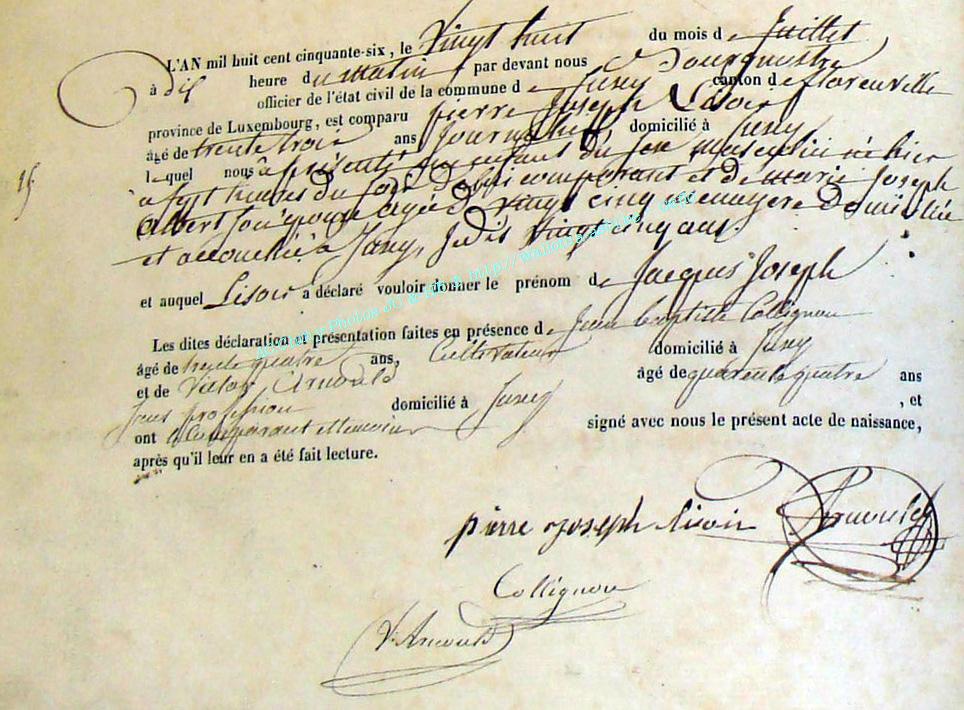 L'AN mil huit cent cinquante-six, le Vingt huit du mois de Juillet
à dix heure du matin par devant nous Bourgmestre
officier de l'état civil de la commune de Izel canton de florenville
province de Luxembourg, est comparu pierre Joseph Lisoir
âgé de trente trois ans Journalier, domicilié à
lequel nous a présenté un enfant du sexe masculin né hier
à sept heures du soir de lui comparant et de marie Joseph
Albert son épouse agée de vingt cinq ménagère Domiciliée
et accouchée à , Je dis Vingt cinq ans.
et auquel Lisoir a déclaré vouloir donner le prénom de Jacques Joseph
Les dites déclaration et présentation faites en présence de Jean baptiste Collignon
âgé de trente quatre ans, Cultivateur domicilié à
et de Victor Arnould âgé de quarente quatre ans
sans profession domicilié à , et
ont Comparant et temoins signé avec nous le présent acte de naissance,
après qu'il leur en a été fait lecture.
pierre joseph lisoir Arnould
Collignon
V. Arnould